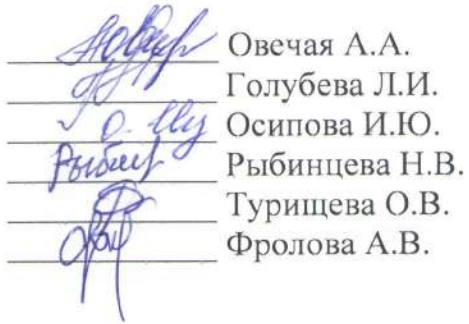 Овечая А.А.
Голубева Л.И.
Осипова И.Ю.
Рыбинцева Н.В.
Турищева О.В.
Фролова А.В.